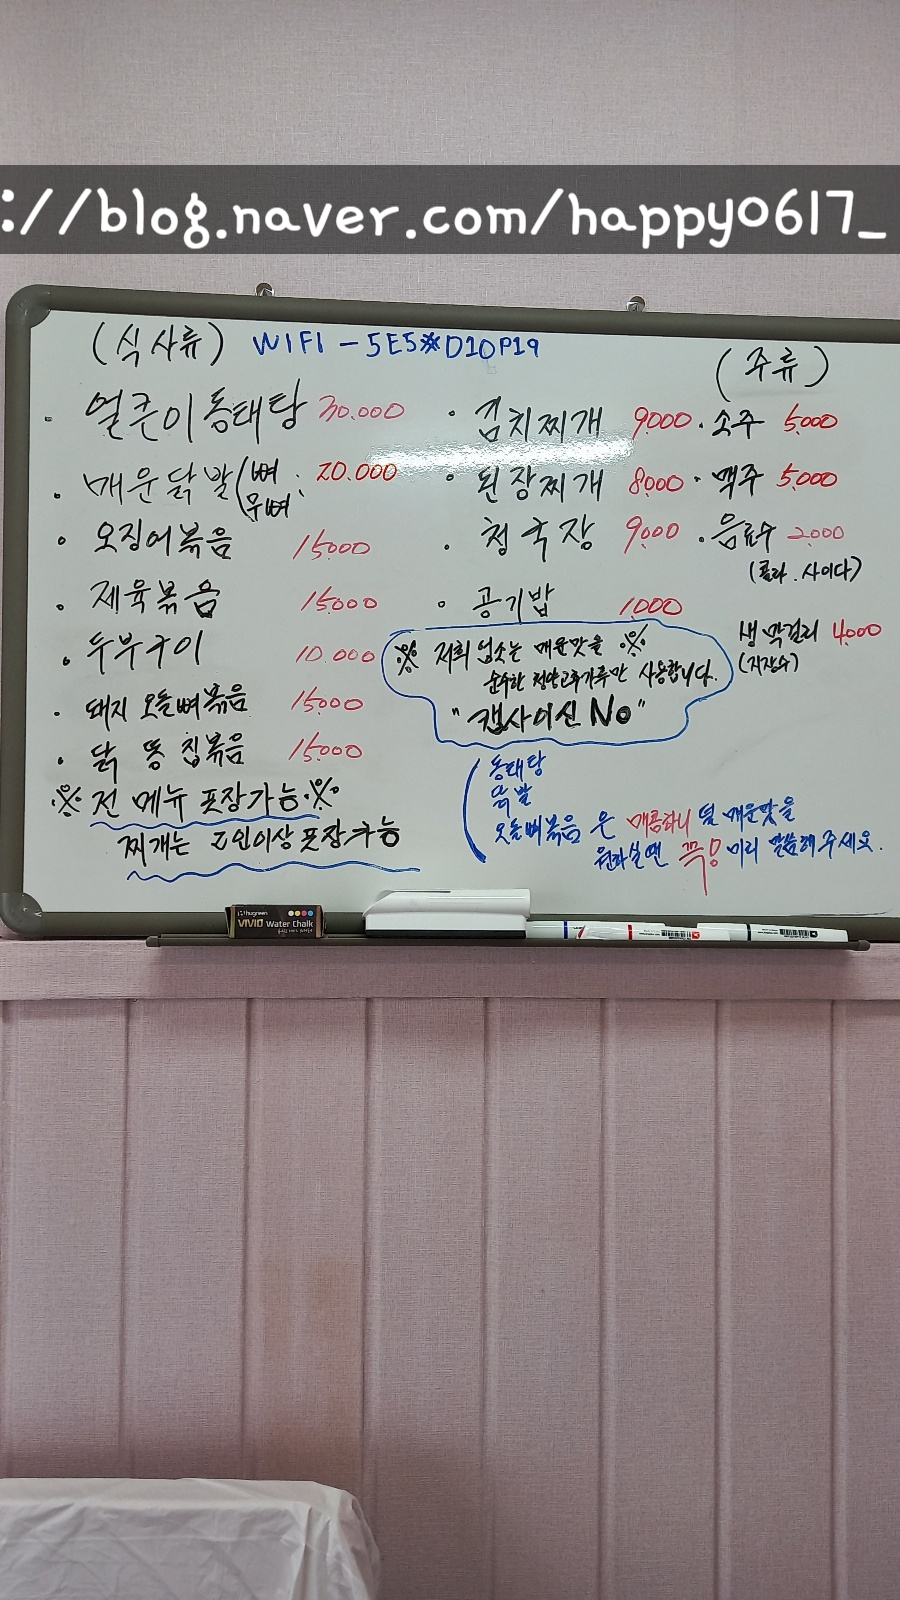 ://blog.naver.com/happy0617_
(식사류) WIFI - 5E5※D10P19
(주류)
· 얼큰이동태탕 30.000
· 매운닭발(뼈 무뼈: 20.000
· 오징어볶음 15000
· 제육볶음 15000
· 두부구이 10.000
· 돼지 오돌뼈볶음 15000
· 닭 똥 집볶음 15000
※ 전 메뉴 포장가능 ※
찌개는 2인이상 포장가능
· 김치찌개 9000
· 된장찌개 8000
· 청국장 9000
· 공기밥 1000
· 소주 5000
· 맥주 5000
· 음료수 2000
(콜라. 사이다)
생막걸리 4000
(지장수)
※ 저희 업소는 매운맛을 ※
순수한 청양고추가루만 사용합니다.
"캡사이신 No"
동태탕
닭발
오돌뼈볶음 은 매콤하니 덜 매운맛을
원하실땐 꼭! 미리 말씀해주세요.
hugreen
VIVID Water Chalk